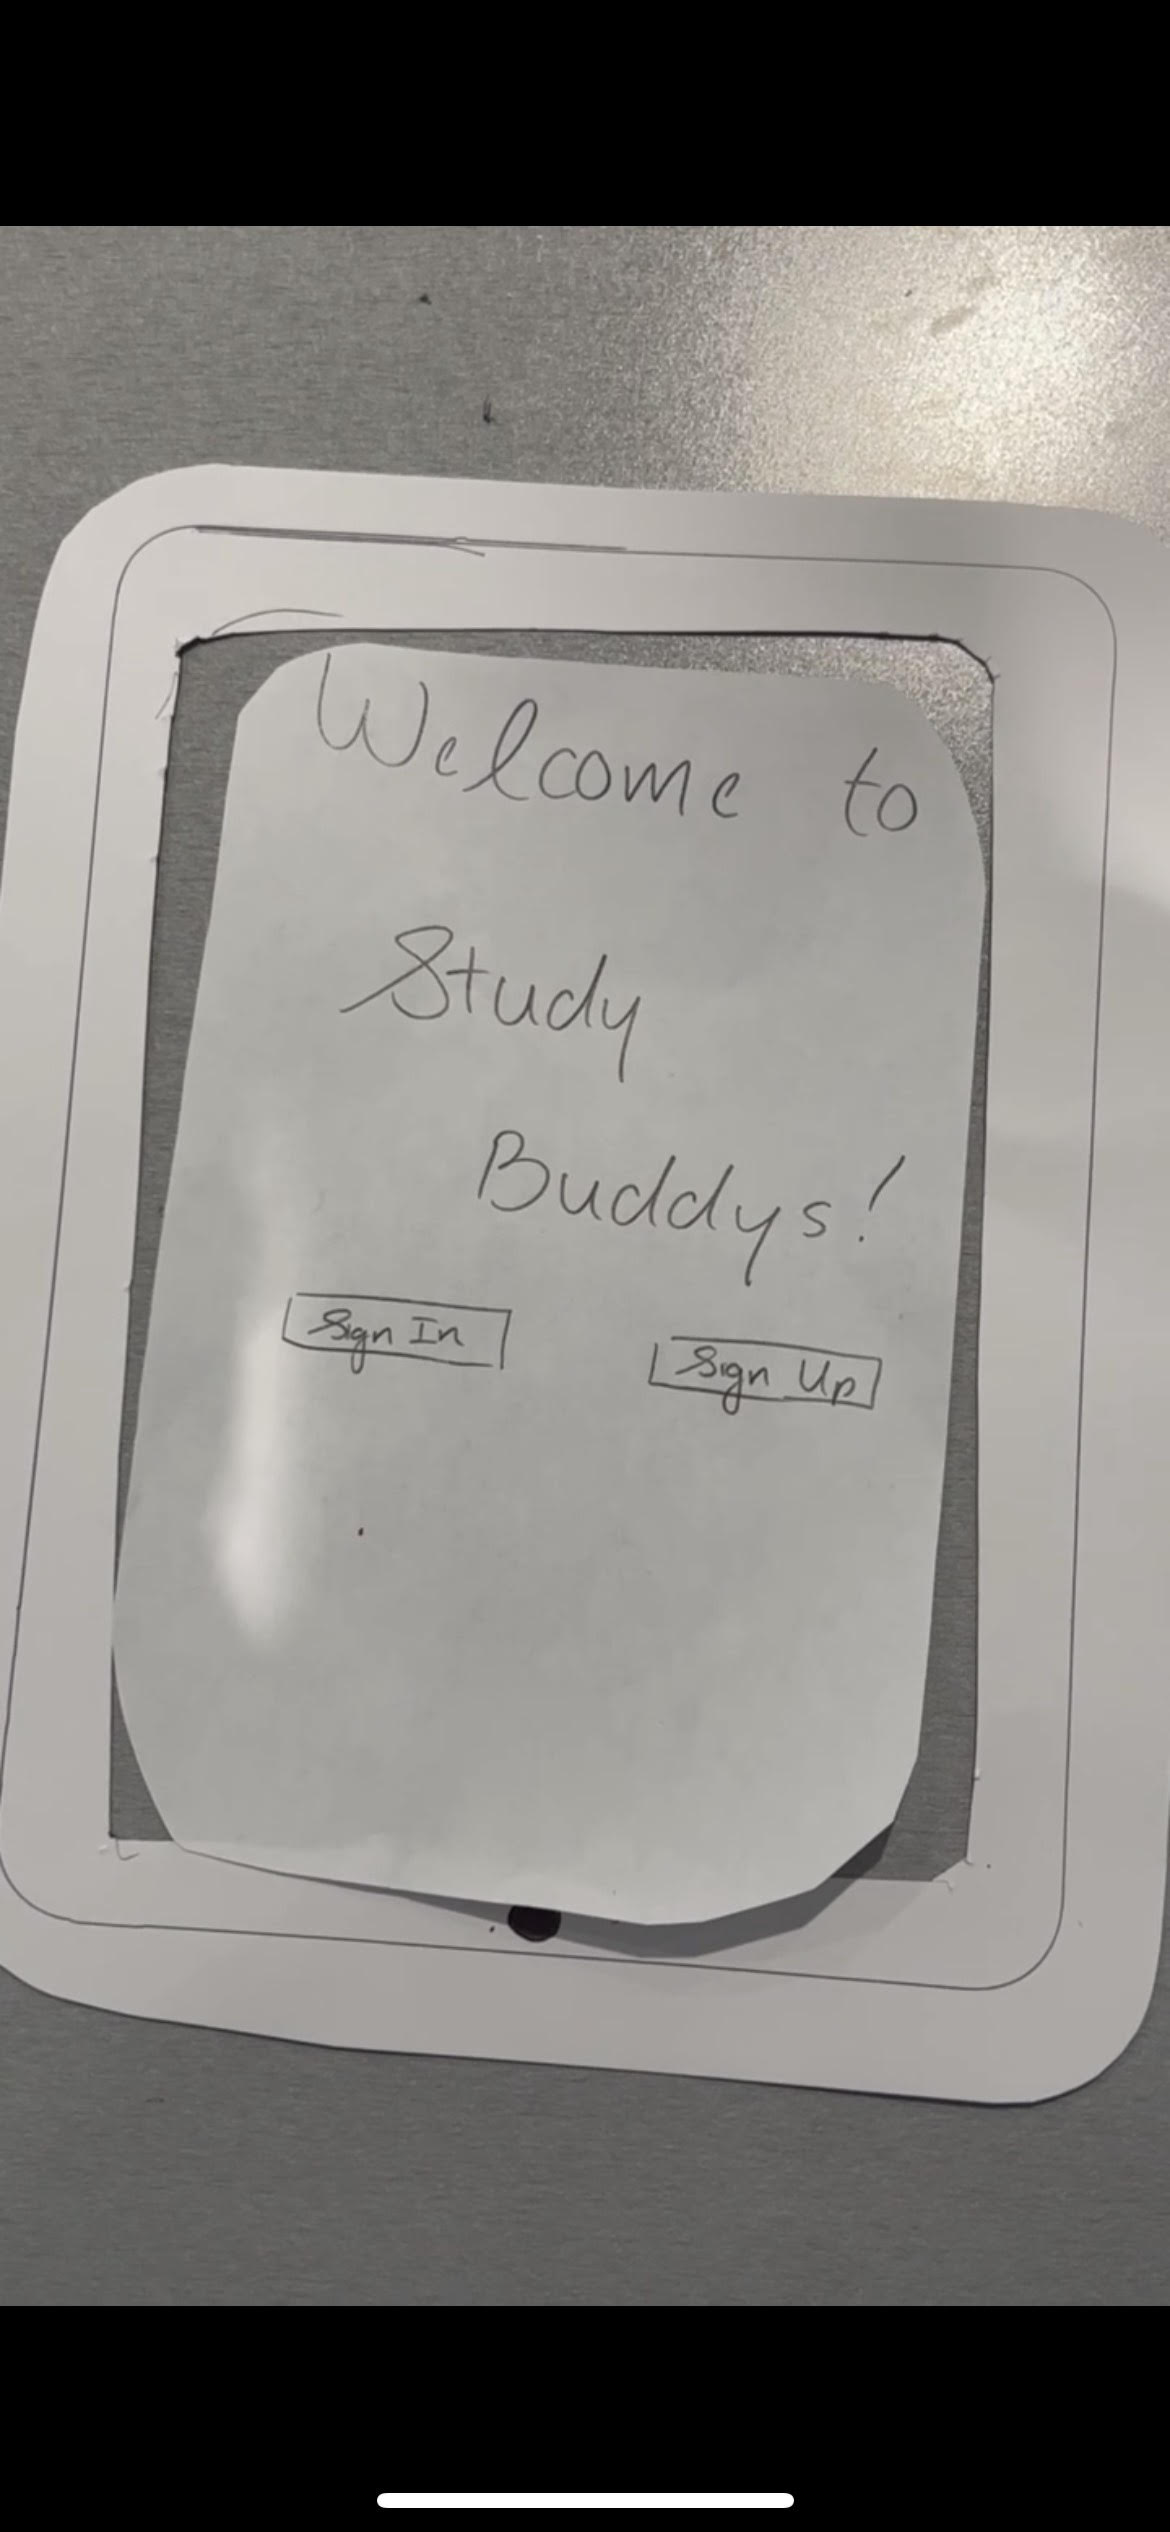 Welcome to
Study
Buddys!
Sign In
Sign Up